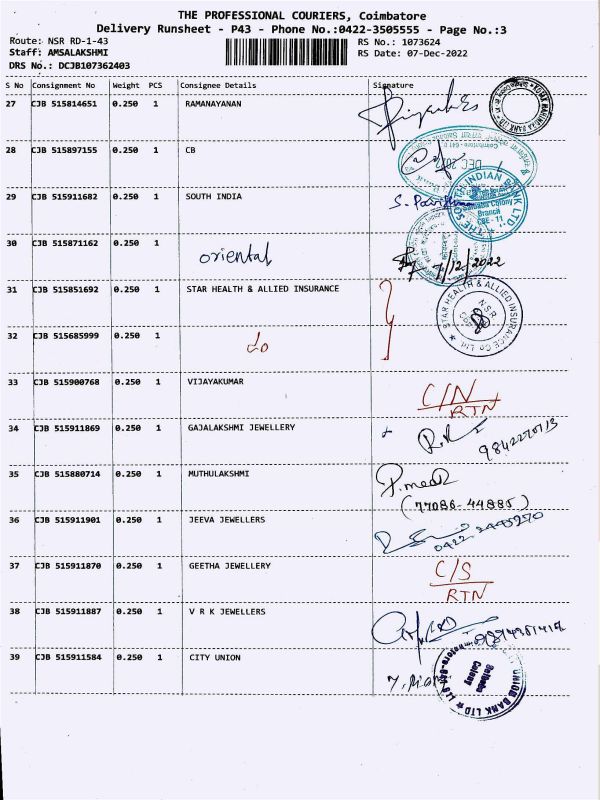 THE PROFESSIONAL COURIERS, Coimbatore
Delivery Runsheet - P43 - Phone No.:0422-3505555 - Page No.:3
Route: NSR RD-1-43 RS No.: 1073624
Staff: AMSALAKSHMI RS Date: 07-Dec-2022
DRS No.: DCJB107362403
S No Consignment No Weight PCS Consignee Details Signature
27 CJB 515814651 0.250 1 RAMANAYANAN
28 CJB 515897155 0.250 1 CB
DEC 2022
29 CJB 515911682 0.250 1 SOUTH INDIA
THE SOUTH INDIAN BANK LTD.
Saibaba Colony
Branch
CBE - 11
30 CJB 515871162 0.250 1 oriental 7/12/2022
31 CJB 515851692 0.250 1 STAR HEALTH & ALLIED INSURANCE
STAR HEALTH & ALLIED INSURANCE Co. Ltd.
N.S.R.
32 CJB 515685999 0.250 1 do
33 CJB 515900768 0.250 1 VIJAYAKUMAR C/N
RTN
34 CJB 515911869 0.250 1 GAJALAKSHMI JEWELLERY
35 CJB 515880714 0.250 1 MUTHULAKSHMI
(77086-44885)
36 CJB 515911901 0.250 1 JEEVA JEWELLERS
37 CJB 515911870 0.250 1 GEETHA JEWELLERY C/S
RTN
38 CJB 515911887 0.250 1 V R K JEWELLERS
39 CJB 515911584 0.250 1 CITY UNION
UNION BANK LTD
Saibaba
Colony